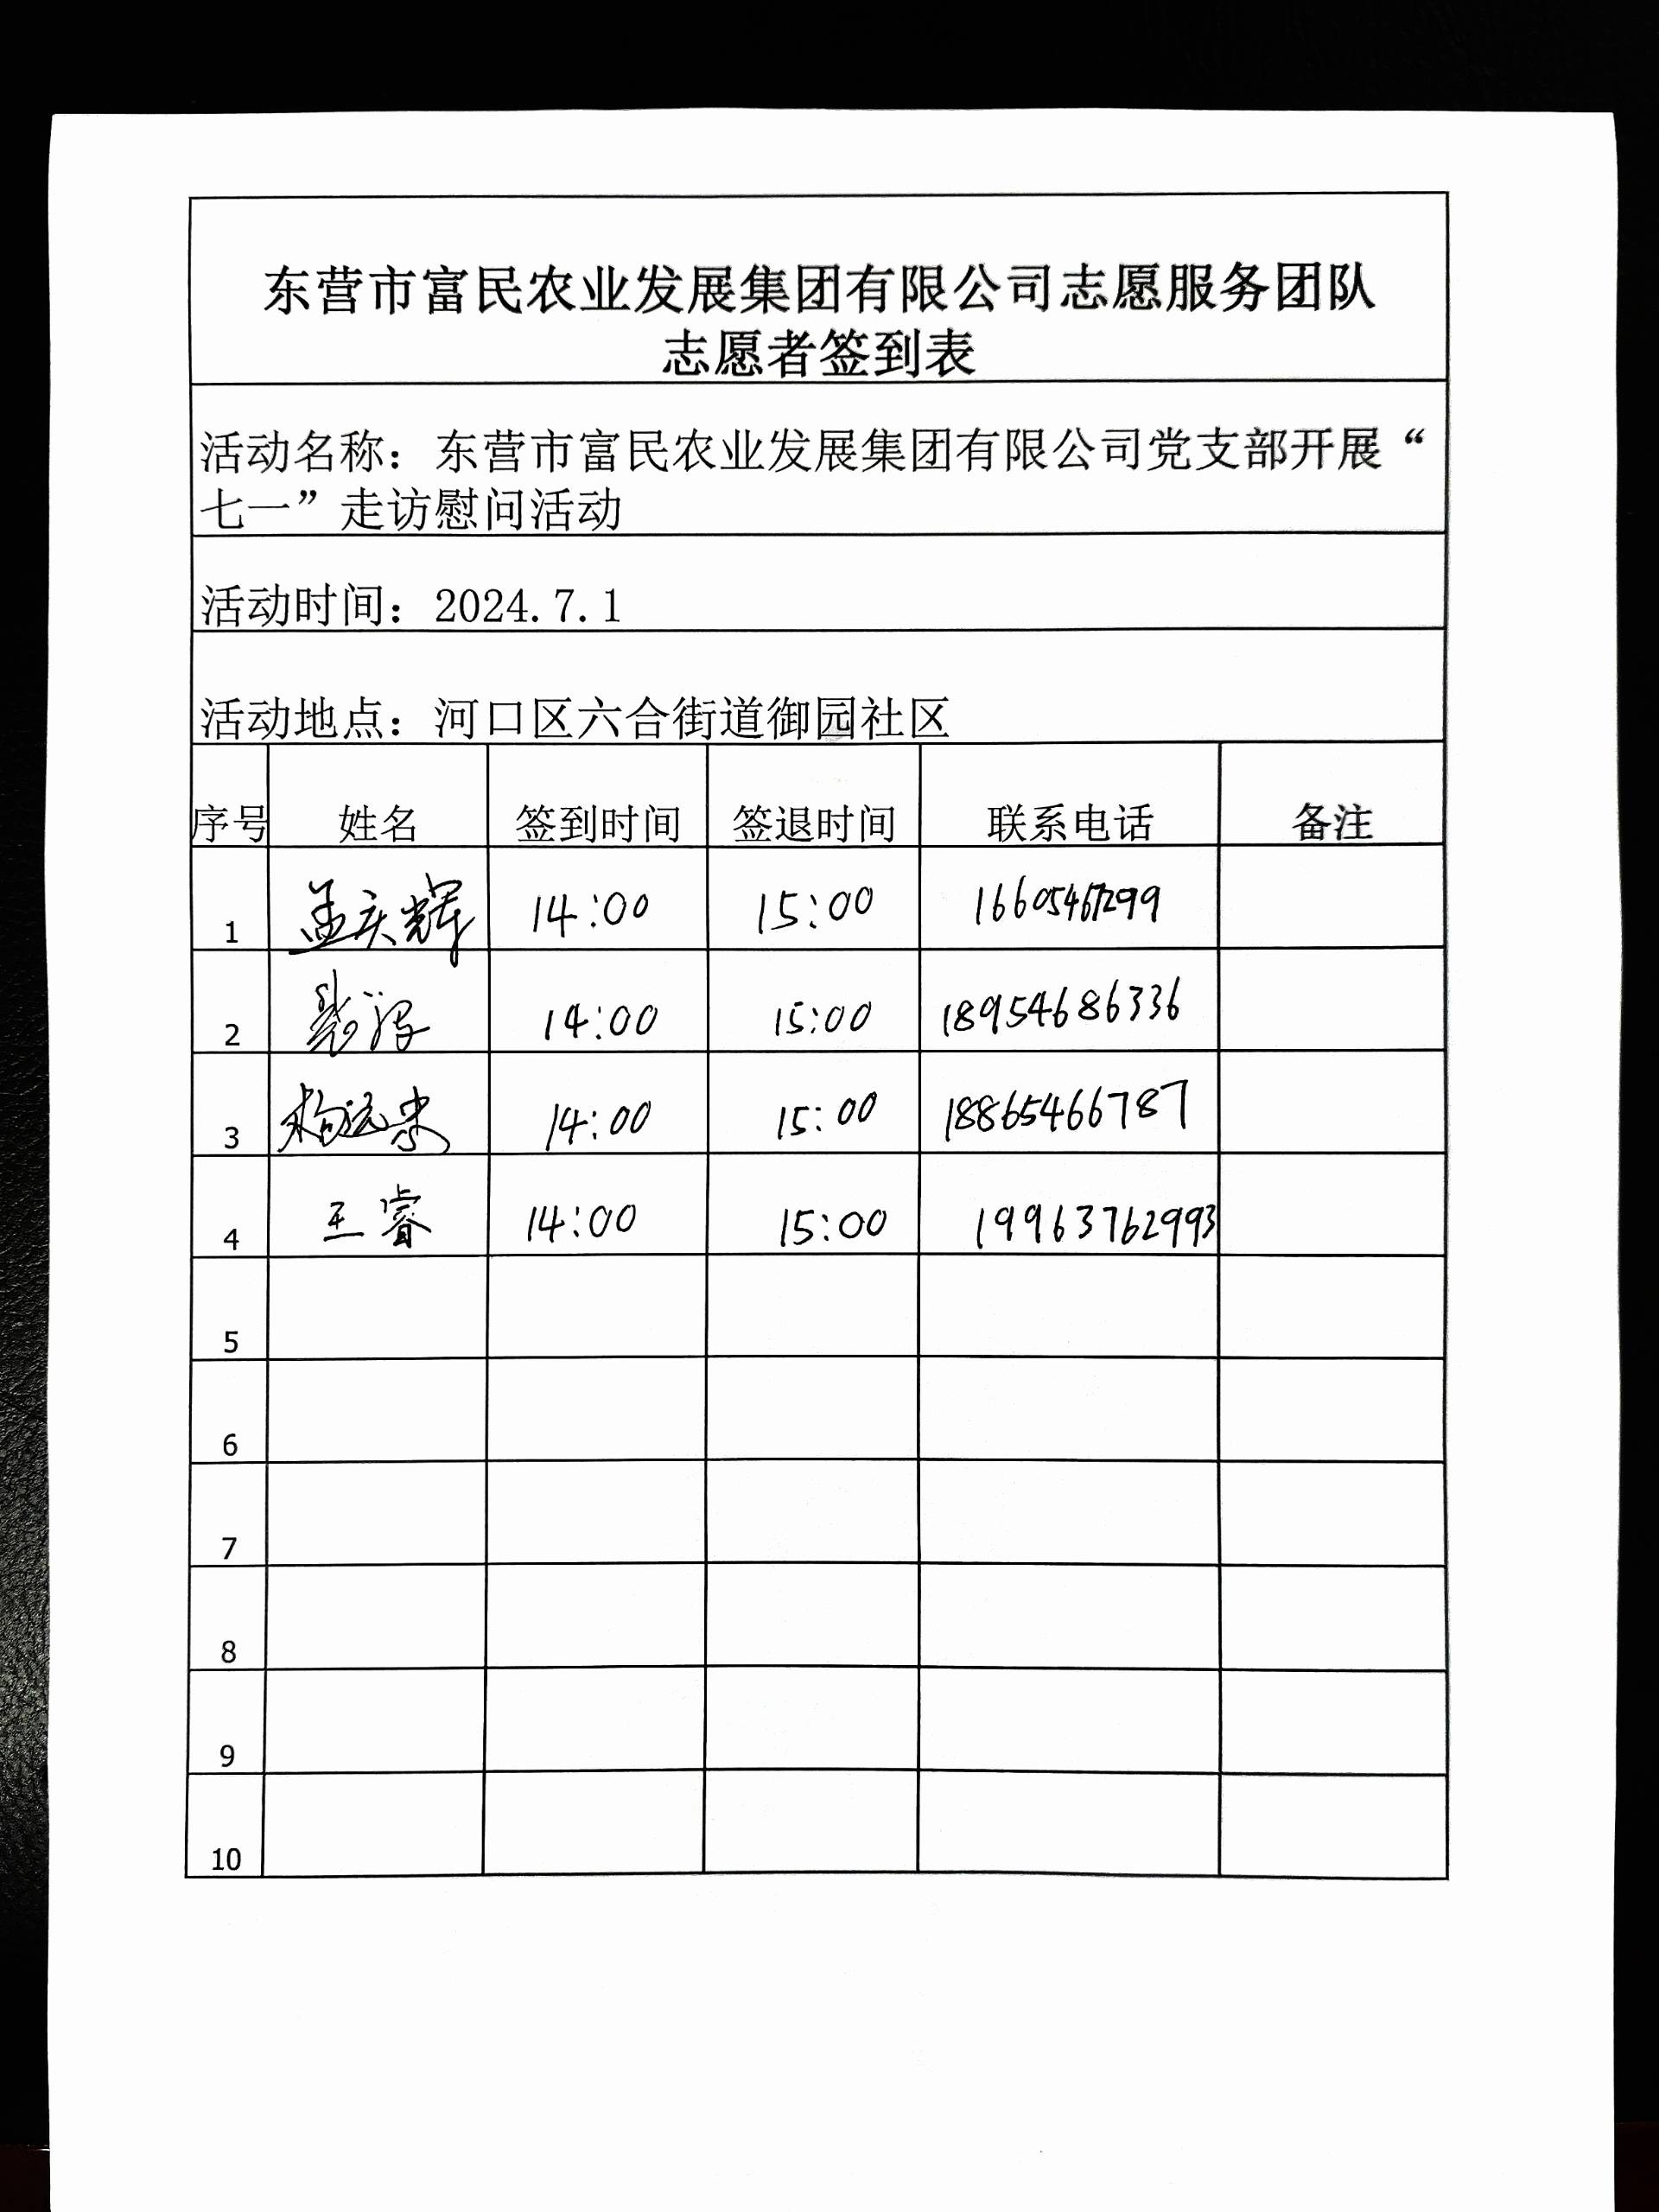 东营市富民农业发展集团有限公司志愿服务团队
志愿者签到表
活动名称：东营市富民农业发展集团有限公司党支部开展“
七一”走访慰问活动
活动时间：2024.7.1
活动地点：河口区六合街道御园社区
序号 姓名 签到时间 签退时间 联系电话 备注
1 孟庆辉 14:00 15:00
2 14:00 15:00 18954686336
3 14:00 15:00 18865466787
4 王睿 14:00 15:00 19963762993
5
6
7
8
9
10